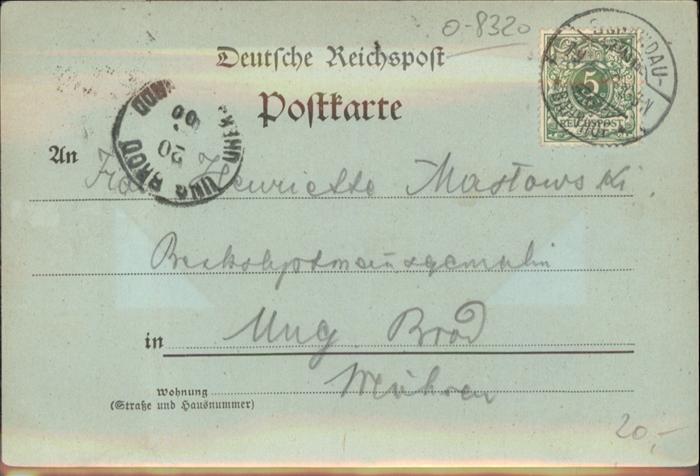 0-8320
Deutsche Reichspost
Postkarte
SCHANDAU-
BAHNHOF
5
REICHSPOST
UNG. BROD
20
00
An Frau Henriette Mastowski
Bezirkshauptmannsgemalin
in Ung. Brod
Mähren
Wohnung
(Straße und Hausnummer)
20,-